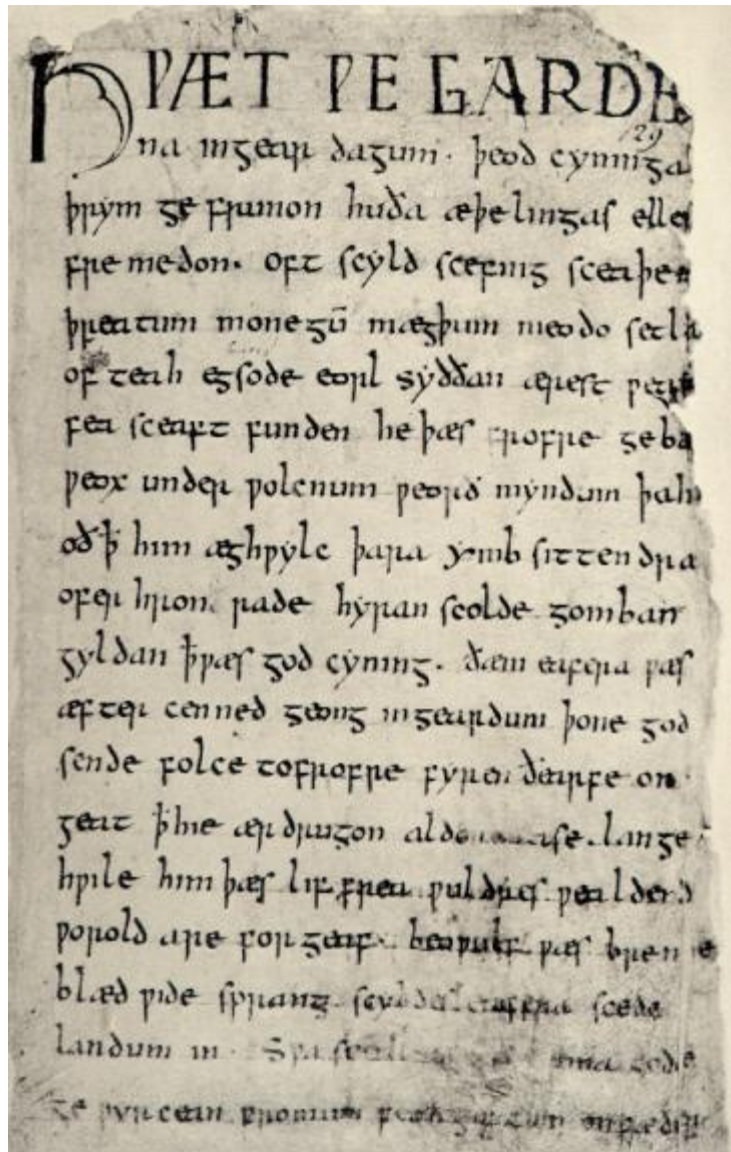 HǷÆT ǷE GARDE
129
na ingear dagum. þeod cyninga
þrym ge frunon huða æþelingas ellen
fre medon. oft scyld scefing sceaþena
þreatum monegū mægþum meodo setla
of teah egsode eorl syððan ærest ƿearð
fea sceaft funden he þæs frofre geba
ƿeox under ƿolcnum ƿeorð myndum þah
oð ꝥ him æghƿylc þara ymb sittendra
ofer hron rade hyran scolde gomban
gyldan ꝥ ƿæs god cyning. ðæm eafera ƿæs
æfter cenned geong ingeardum þone god
sende folce tofrofre fyren ðearfe on
geat ꝥ hie ær drugon aldor ase. lange
hƿile him þæs lif frea ƿuldres ƿealdend
ƿorold are for geaf. beoƿulf ƿæs breme
blæd ƿide sprang scyldes eafera scede
landum in. Sƿa sceal ma gode
ge ƿyrcean fromum feoh giftum on fæder